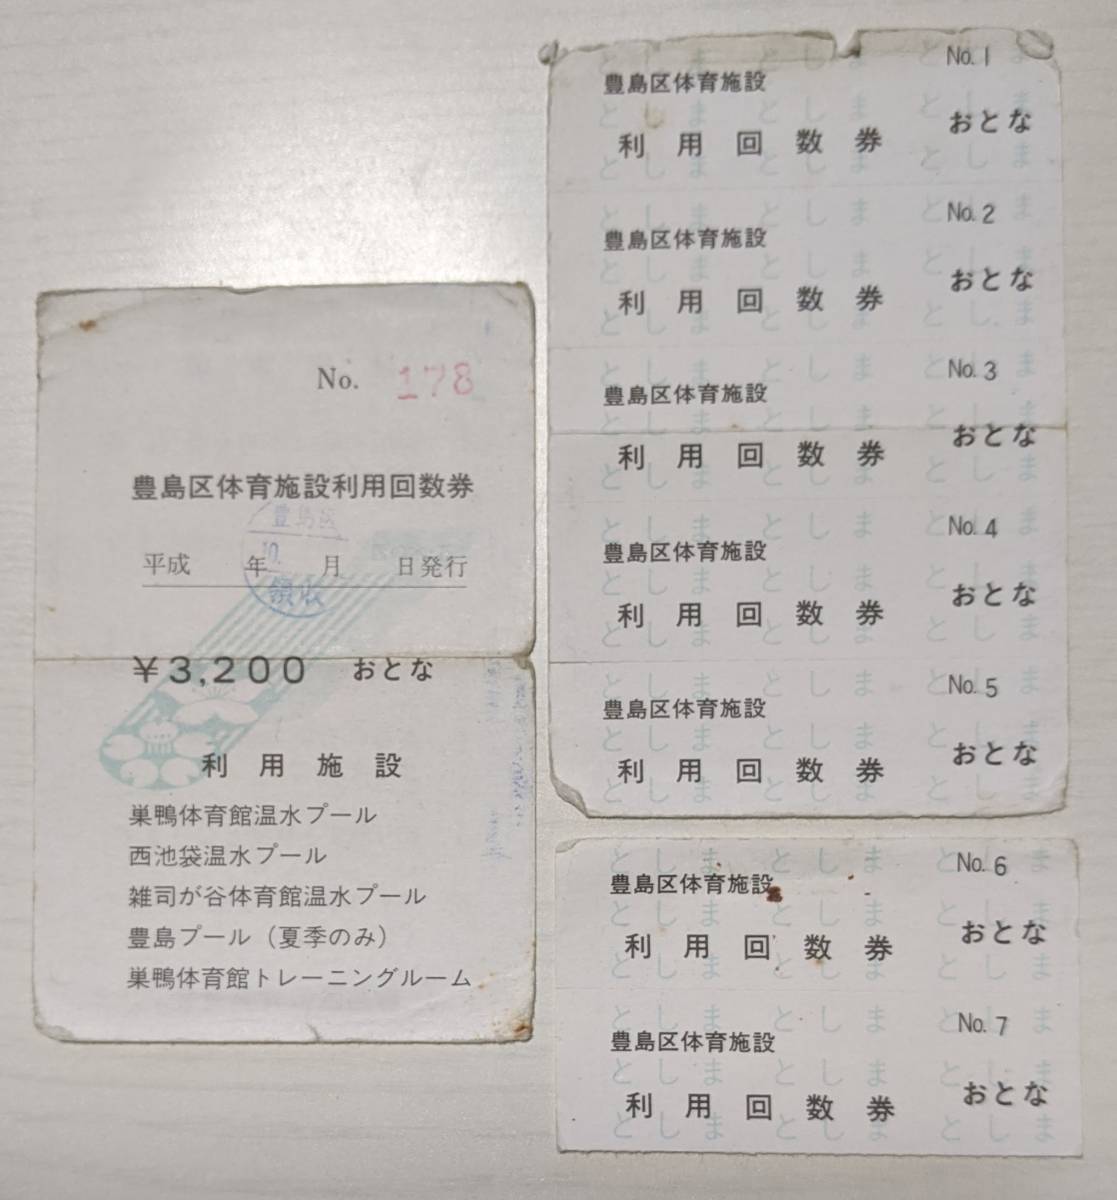 No. 178
豊島区体育施設利用回数券
豊島区
10.
領収
平成 年 月 日発行
¥3,200 おとな
利用施設
巣鴨体育館温水プール
西池袋温水プール
雑司が谷体育館温水プール
豊島プール（夏季のみ）
巣鴨体育館トレーニングルーム
No. 1
豊島区体育施設
おとな
利用回数券
No. 2
豊島区体育施設
おとな
利用回数券
No. 3
豊島区体育施設
おとな
利用回数券
No. 4
豊島区体育施設
おとな
利用回数券
No. 5
豊島区体育施設
おとな
利用回数券
No. 6
豊島区体育施設
おとな
利用回数券
No. 7
豊島区体育施設
おとな
利用回数券